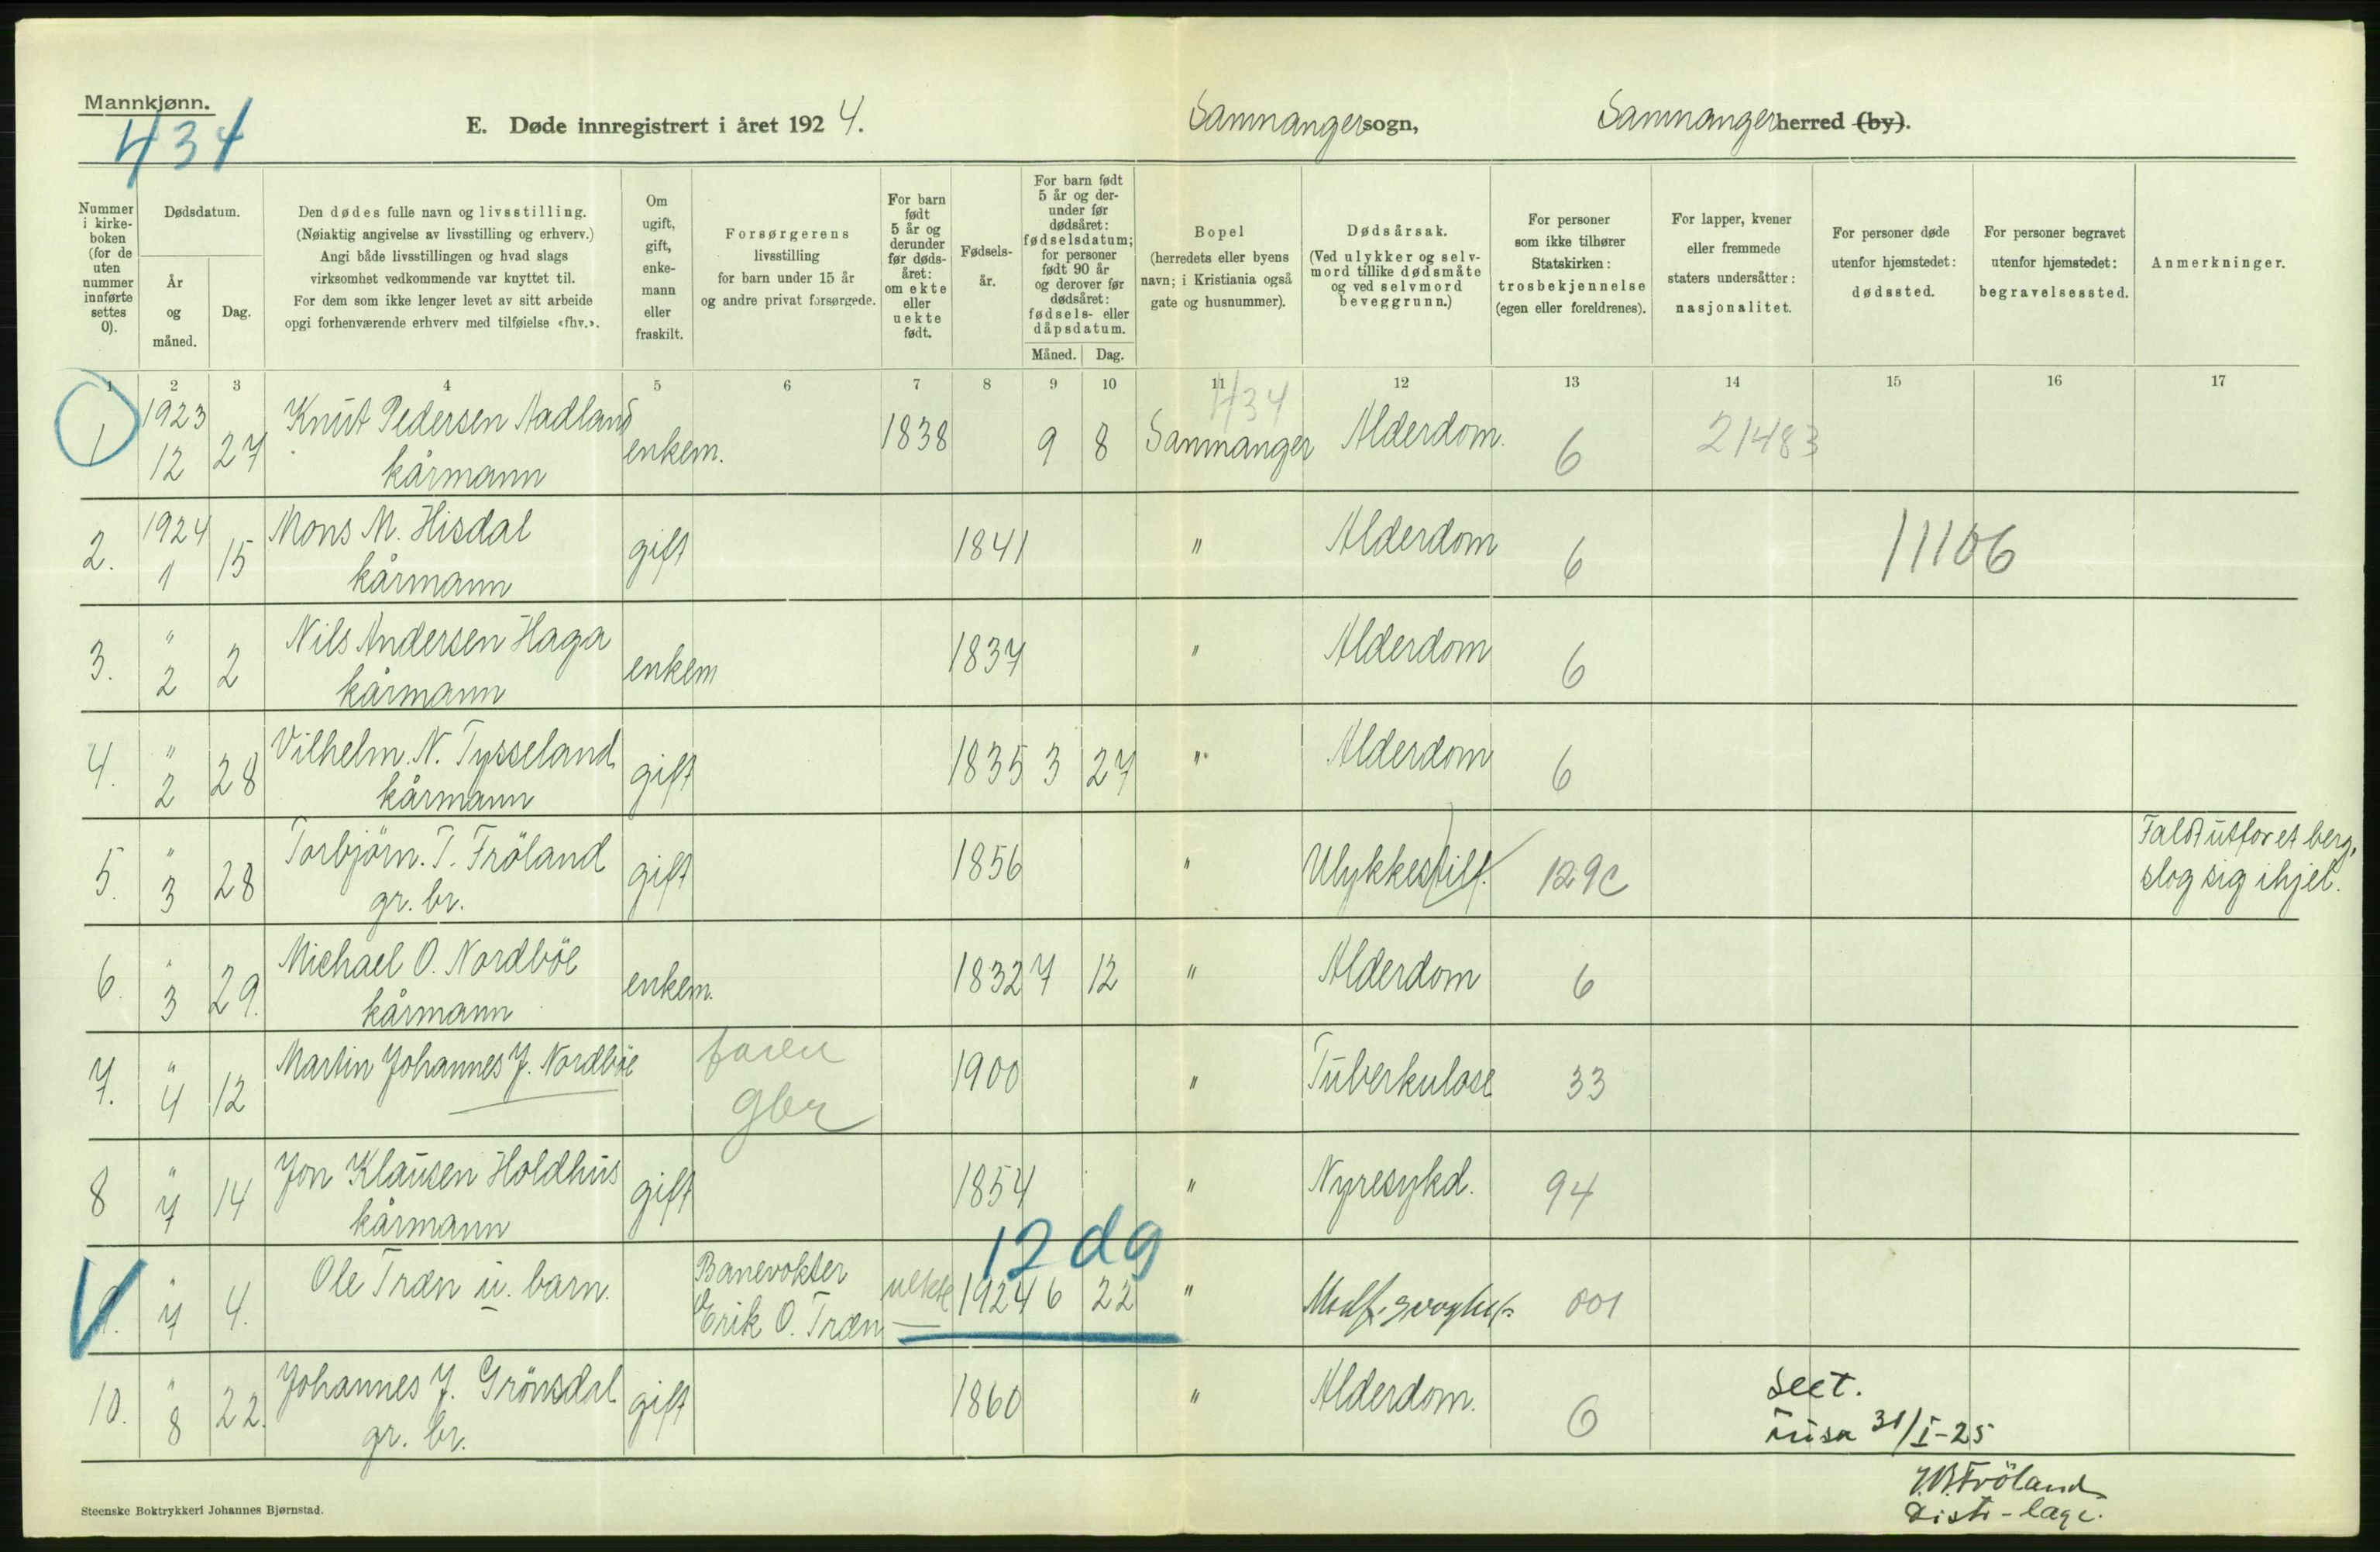 Mannkjønn.
434
E. Døde innregistrert i året 1924.
Samnanger sogn,
Samnanger herred (by).
Nummer i kirke-boken (for de uten nummer innførte settes 0).
Dødsdatum.
År og måned.
Dag.
Den dødes fulle navn og livsstilling.
(Nøiaktig angivelse av livsstilling og erhverv.)
Angi både livsstillingen og hvad slags
virksomhet vedkommende var knyttet til.
For dem som ikke lenger levet av sitt arbeide
opgi forhenværende erhverv med tilføielse «fhv.».
Om ugift, gift, enke-mann eller fraskilt.
Forsørgerens
livsstilling
for barn under 15 år
og andre privat forsørgede.
For barn født 5 år og derunder før døds-året: om ekte eller uekte født.
Fødsels-år.
For barn født 5 år og der-under før dødsåret: fødselsdatum; for personer født 90 år og derover før dødsåret: fødsels- eller dåpsdatum.
Måned.
Dag.
Bopel
(herredets eller byens
navn; i Kristiania også
gate og husnummer).
Dødsårsak.
(Ved ulykker og selv-
mord tillike dødsmåte
og ved selvmord
beveggrunn.)
For personer
som ikke tilhører
Statskirken:
trosbekjennelse
(egen eller foreldrenes).
For lapper, kvener
eller fremmede
staters undersåtter:
nasjonalitet.
For personer døde
utenfor hjemstedet:
dødssted.
For personer begravet
utenfor hjemstedet:
begravelsessted.
Anmerkninger.
1 2 3 4 5 6 7 8 9 10 11 12 13 14 15 16 17
434
1 1923 12 27 Knut Pedersen Aadland enkem. 1838 9 8 Samnanger Alderdom. 6 21483
kårmann
2. 1924 1 15 Mons M. Hisdal gift 1841 " Alderdom 6 11106
kårmann
3. " 2 2 Nils Andersen Haga enkem 1837 " Alderdom 6
kårmann
4. " 2 28 Vilhelm N. Tysseland gift 1835 3 27 " Alderdom 6
kårmann
5. " 3 28 Torbjörn. T. Fröland gift 1856 " Ulykkestilf. 129c Faldt utfor et berg,
gr. br. slog sig ihjel.
6. " 3 29. Michael O. Nordböe enkem. 1832 7 12 " Alderdom 6
kårmann
7. " 4 12 Martin Johannes J. Nordböe faren 1900 " Tuberkulose 33
gbr
8 " 7 14 Jon Klausen Holdhus gift 1854 " Nyresykd. 94
kårmann
12 dg
9. " 7 4. Ole Træn u. barn. Banevokter uekte 1924 6 22 " 001
Erik O. Træn
10. " 8 22. Johannes J. Grönsdal gift 1860 " Alderdom. 6
gr. br.
Seet.
31/I-25
J.B. Fröland
Distr-læge.
Steenske Boktrykkeri Johannes Bjørnstad.